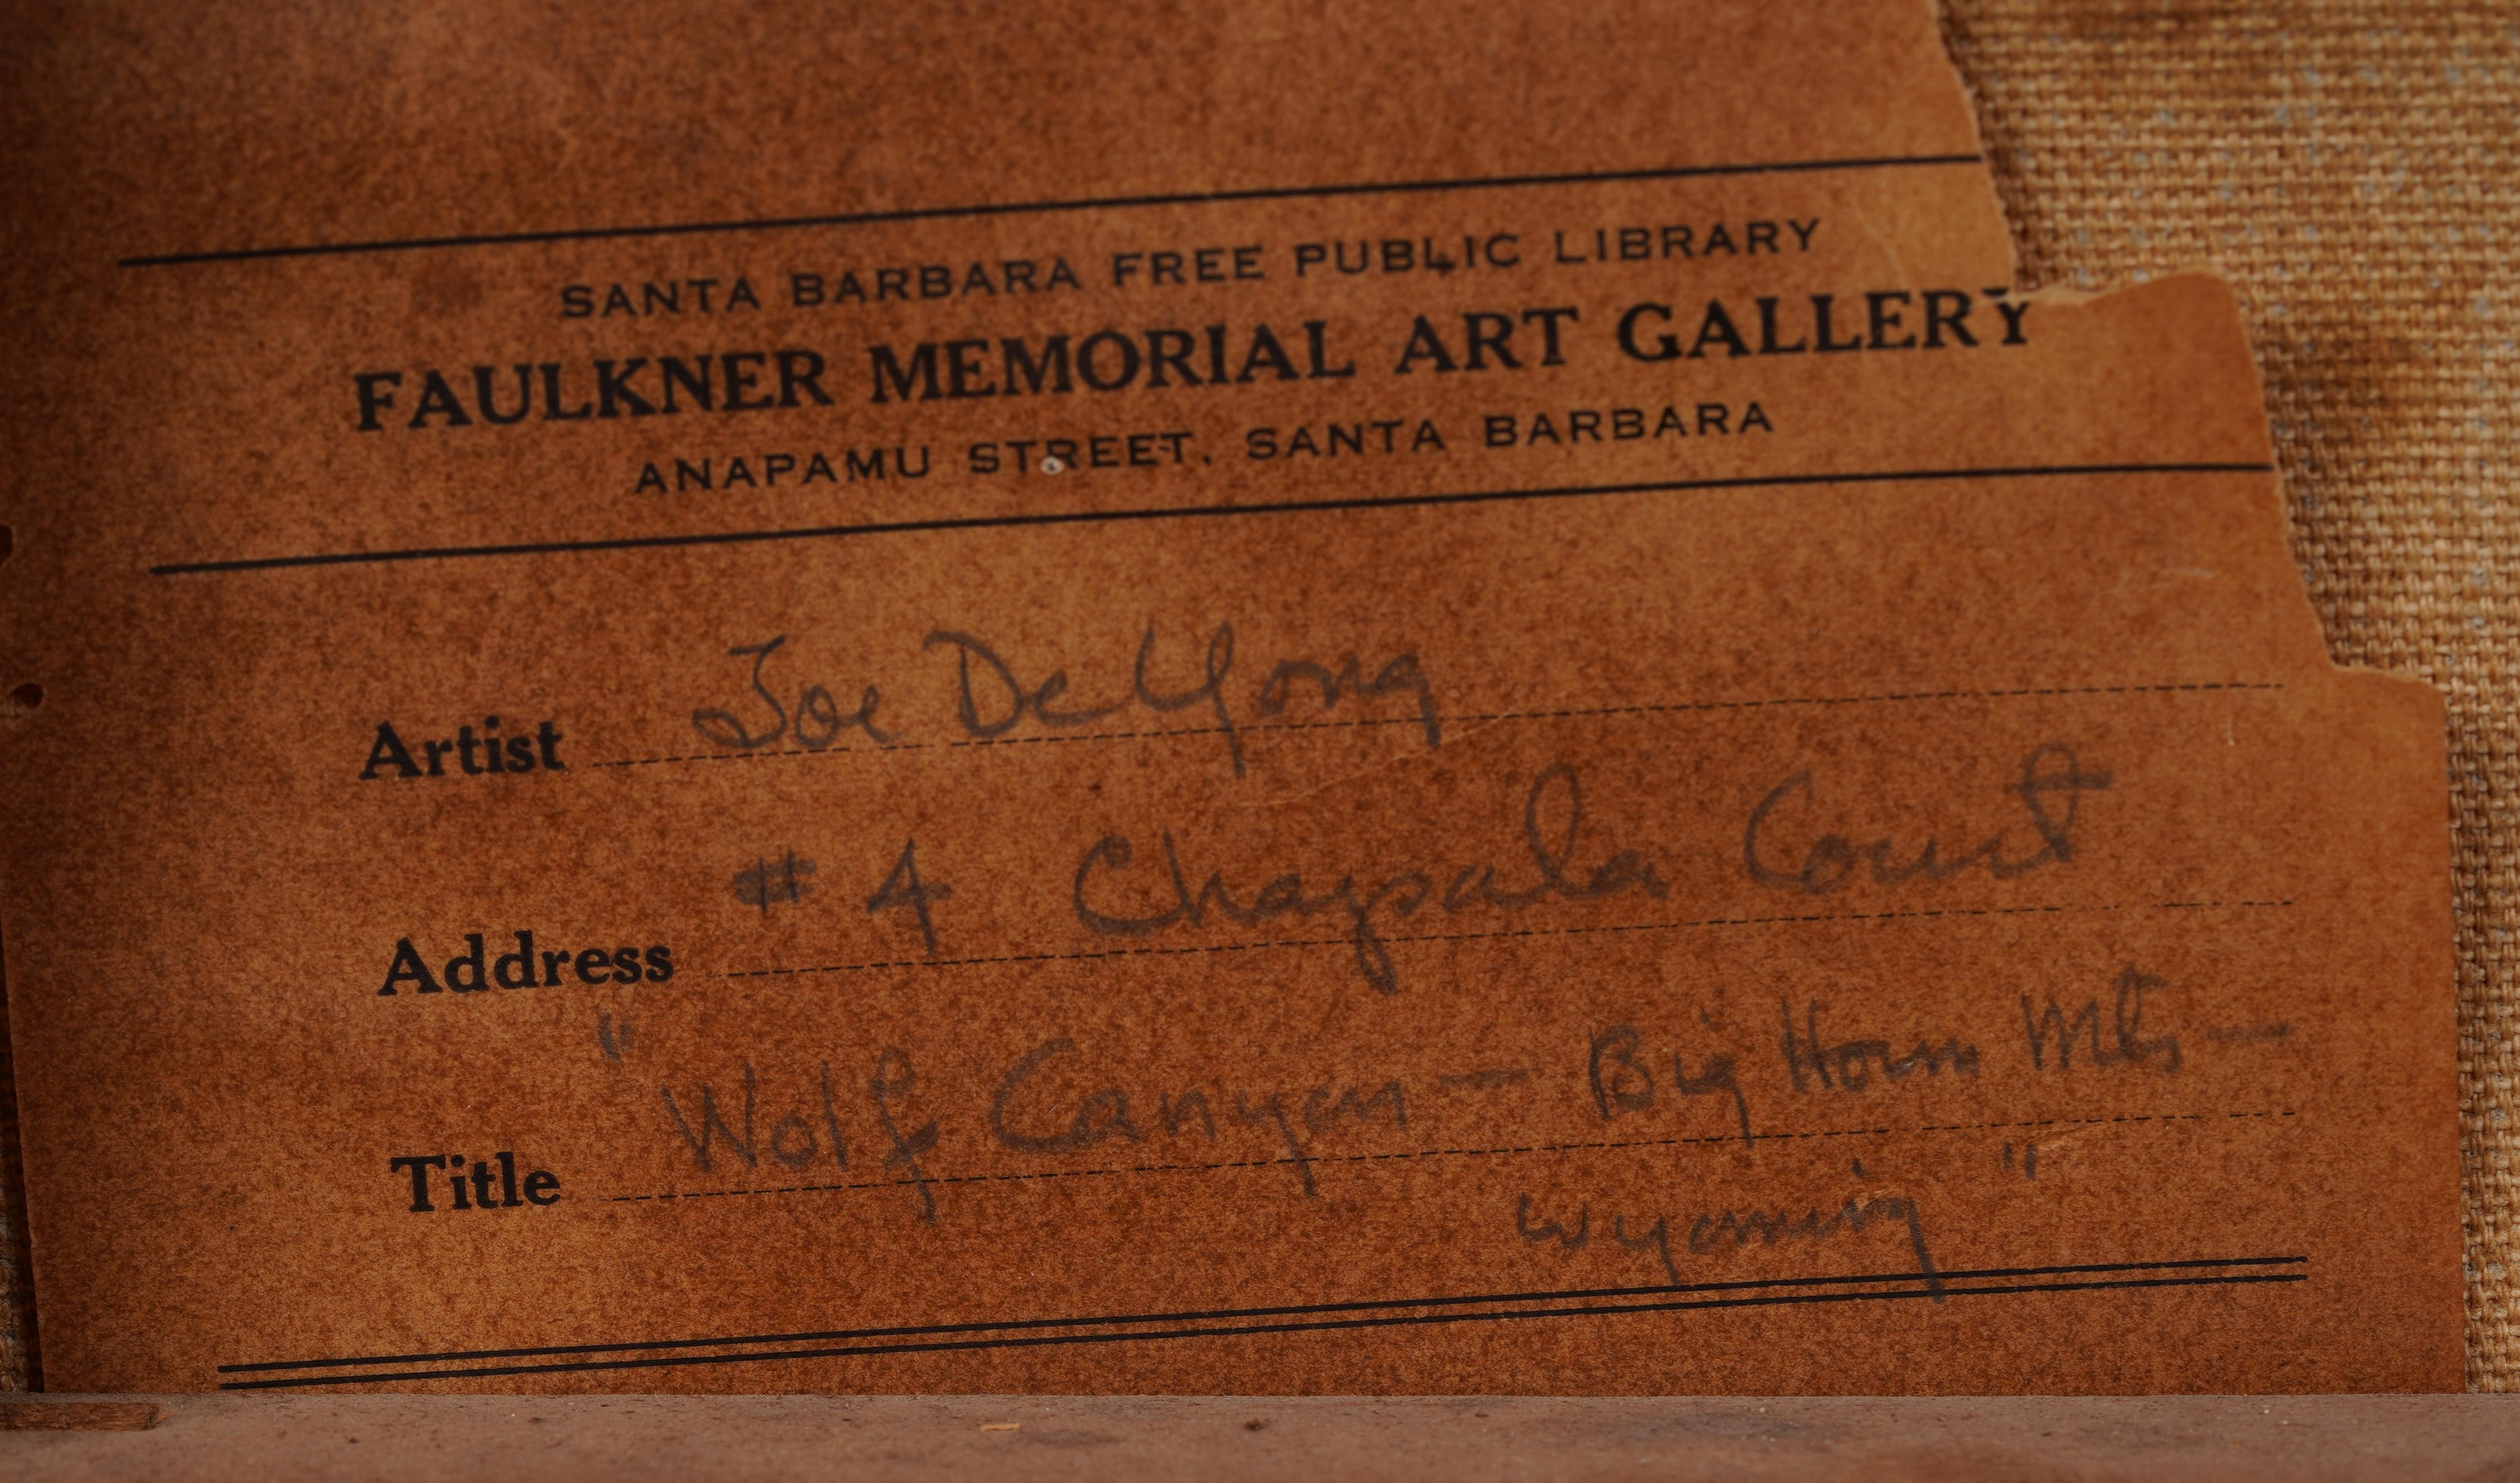 SANTA BARBARA FREE PUBLIC LIBRARY
FAULKNER MEMORIAL ART GALLERY
ANAPAMU STREET, SANTA BARBARA
Artist Joe De Yong
Address # 4 Chapala Court
Title "Wolf Canyon — Big Horn Mts —
Wyoming"